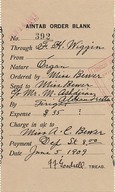 AINTAB ORDER BLANK
No. 392
Through F. H. Wiggin
From
Nature Organ
Ordered by Miss Bewer
Sent to Miss Bewer
% Mr. M.
By Freight Alexandretta
Expense $ 35
Charge in a/c to
Miss A. C. Bewer
Payment Dep St
Date June 5, 1907
TREAS.